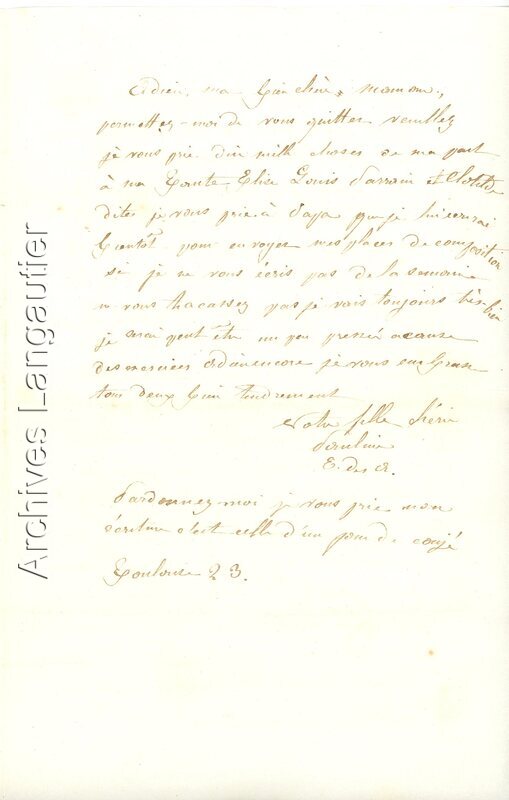 adieu, ma bien chère, maman,
permettez-moi de vous quitter veuillez
je vous prie dire mille choses de ma part
à ma Tante Elise Louis parrain et Clotilde
dites je vous prie à papa que je lui écrirai
bientôt pour envoyer mes places de composition
si je ne vous écris pas de la semaine
ne vous tracassez pas je vais toujours très bien
je serai peut être un peu pressée a cause
des exercices adieu encore je vous embrasse
tous deux bien tendrement
Votre fille chérie
Pauline
E. des
Pardonnez moi je vous prie mon
écriture c'est celle d'un jour de congé
Toulouse 23.
Archives Langautier